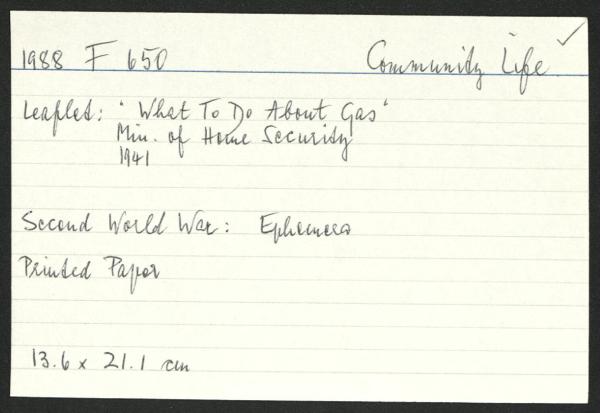 1988 F 650 Community Life ✓
Leaflet: "What To Do About Gas"
Min. of Home Security
1941
Second World War: Ephemera
Printed Paper
13.6 x 21.1 cm